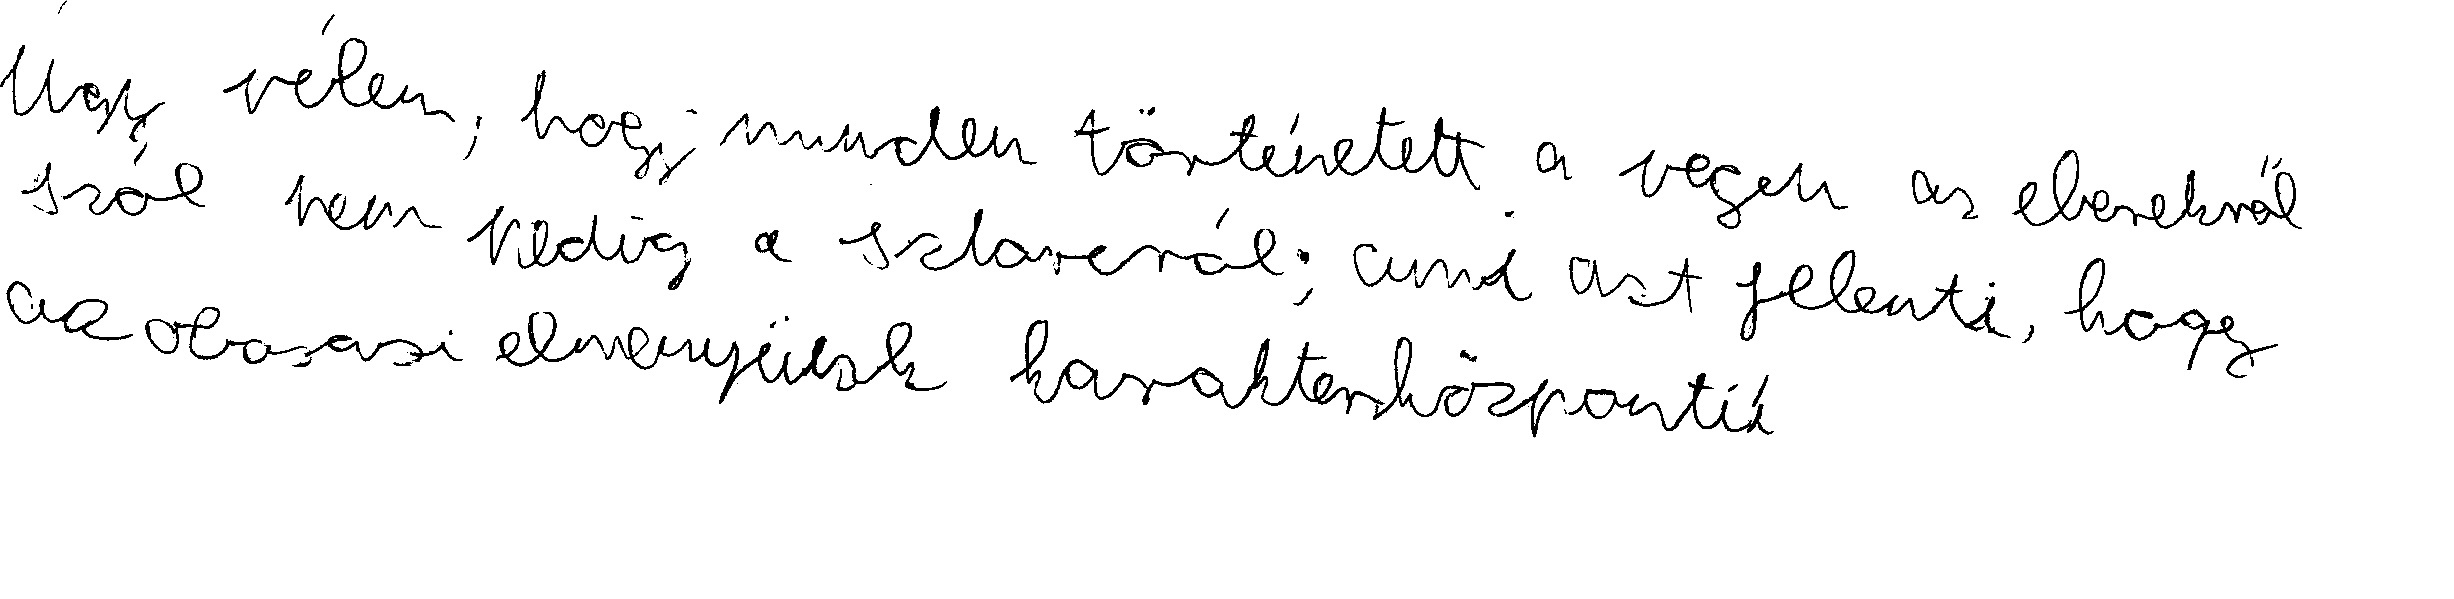 Úgy vélem, hogy minden történetett a vegen az eberekről
szól nem pedig a sztorcról; ami azt jelenti, hogy
az olvasasi elmenyünk karakterközponti